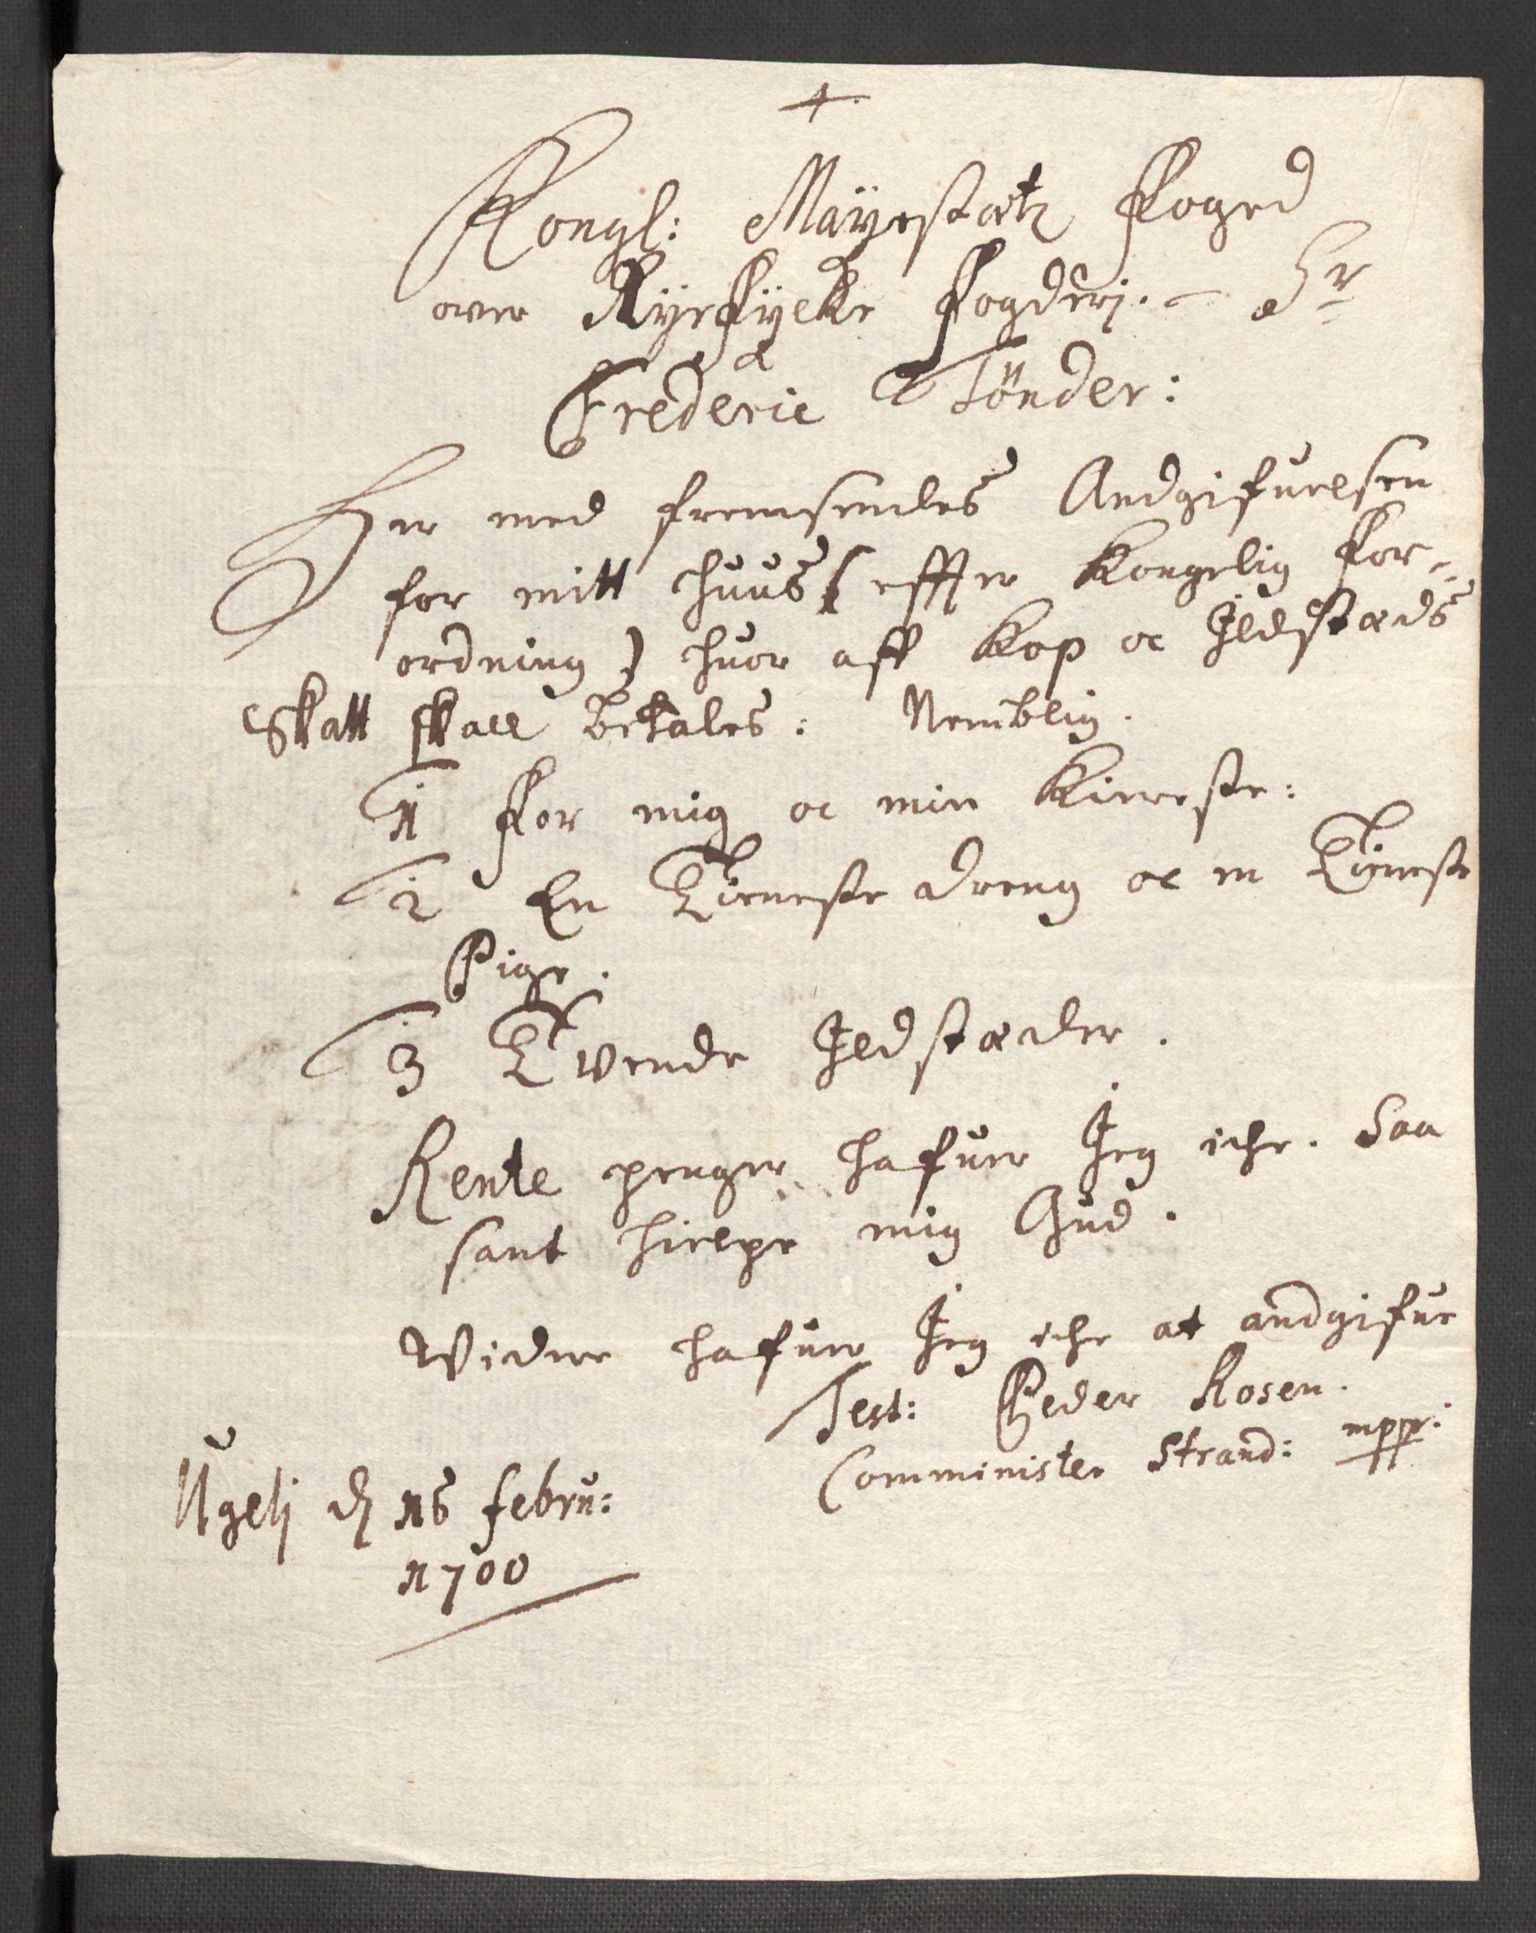 Kongl: Mayestætz Foged
over Ryefycke Fogderj. - Hr
Frederic Tönder:
Her med fremsendes Andgifuelsen
for mitt huus (effter Kongelig For-
ordning) huor aff Kop oc Ildstæds
Skatt skall betales: Nemblig.
1 For mig oc min Kiereste:
2 En Tieneste dreng oc en Tieneste
Pige.
3 Tvende Ildstæder.
Rente penger hafuer Jeg iche. Saa
sant hielpe mig Gud.
Widere hafuer Jeg iche at andgifue
Test: Peder Rosen.
Comminister Strand: mppr:
d 15 febru:
1700